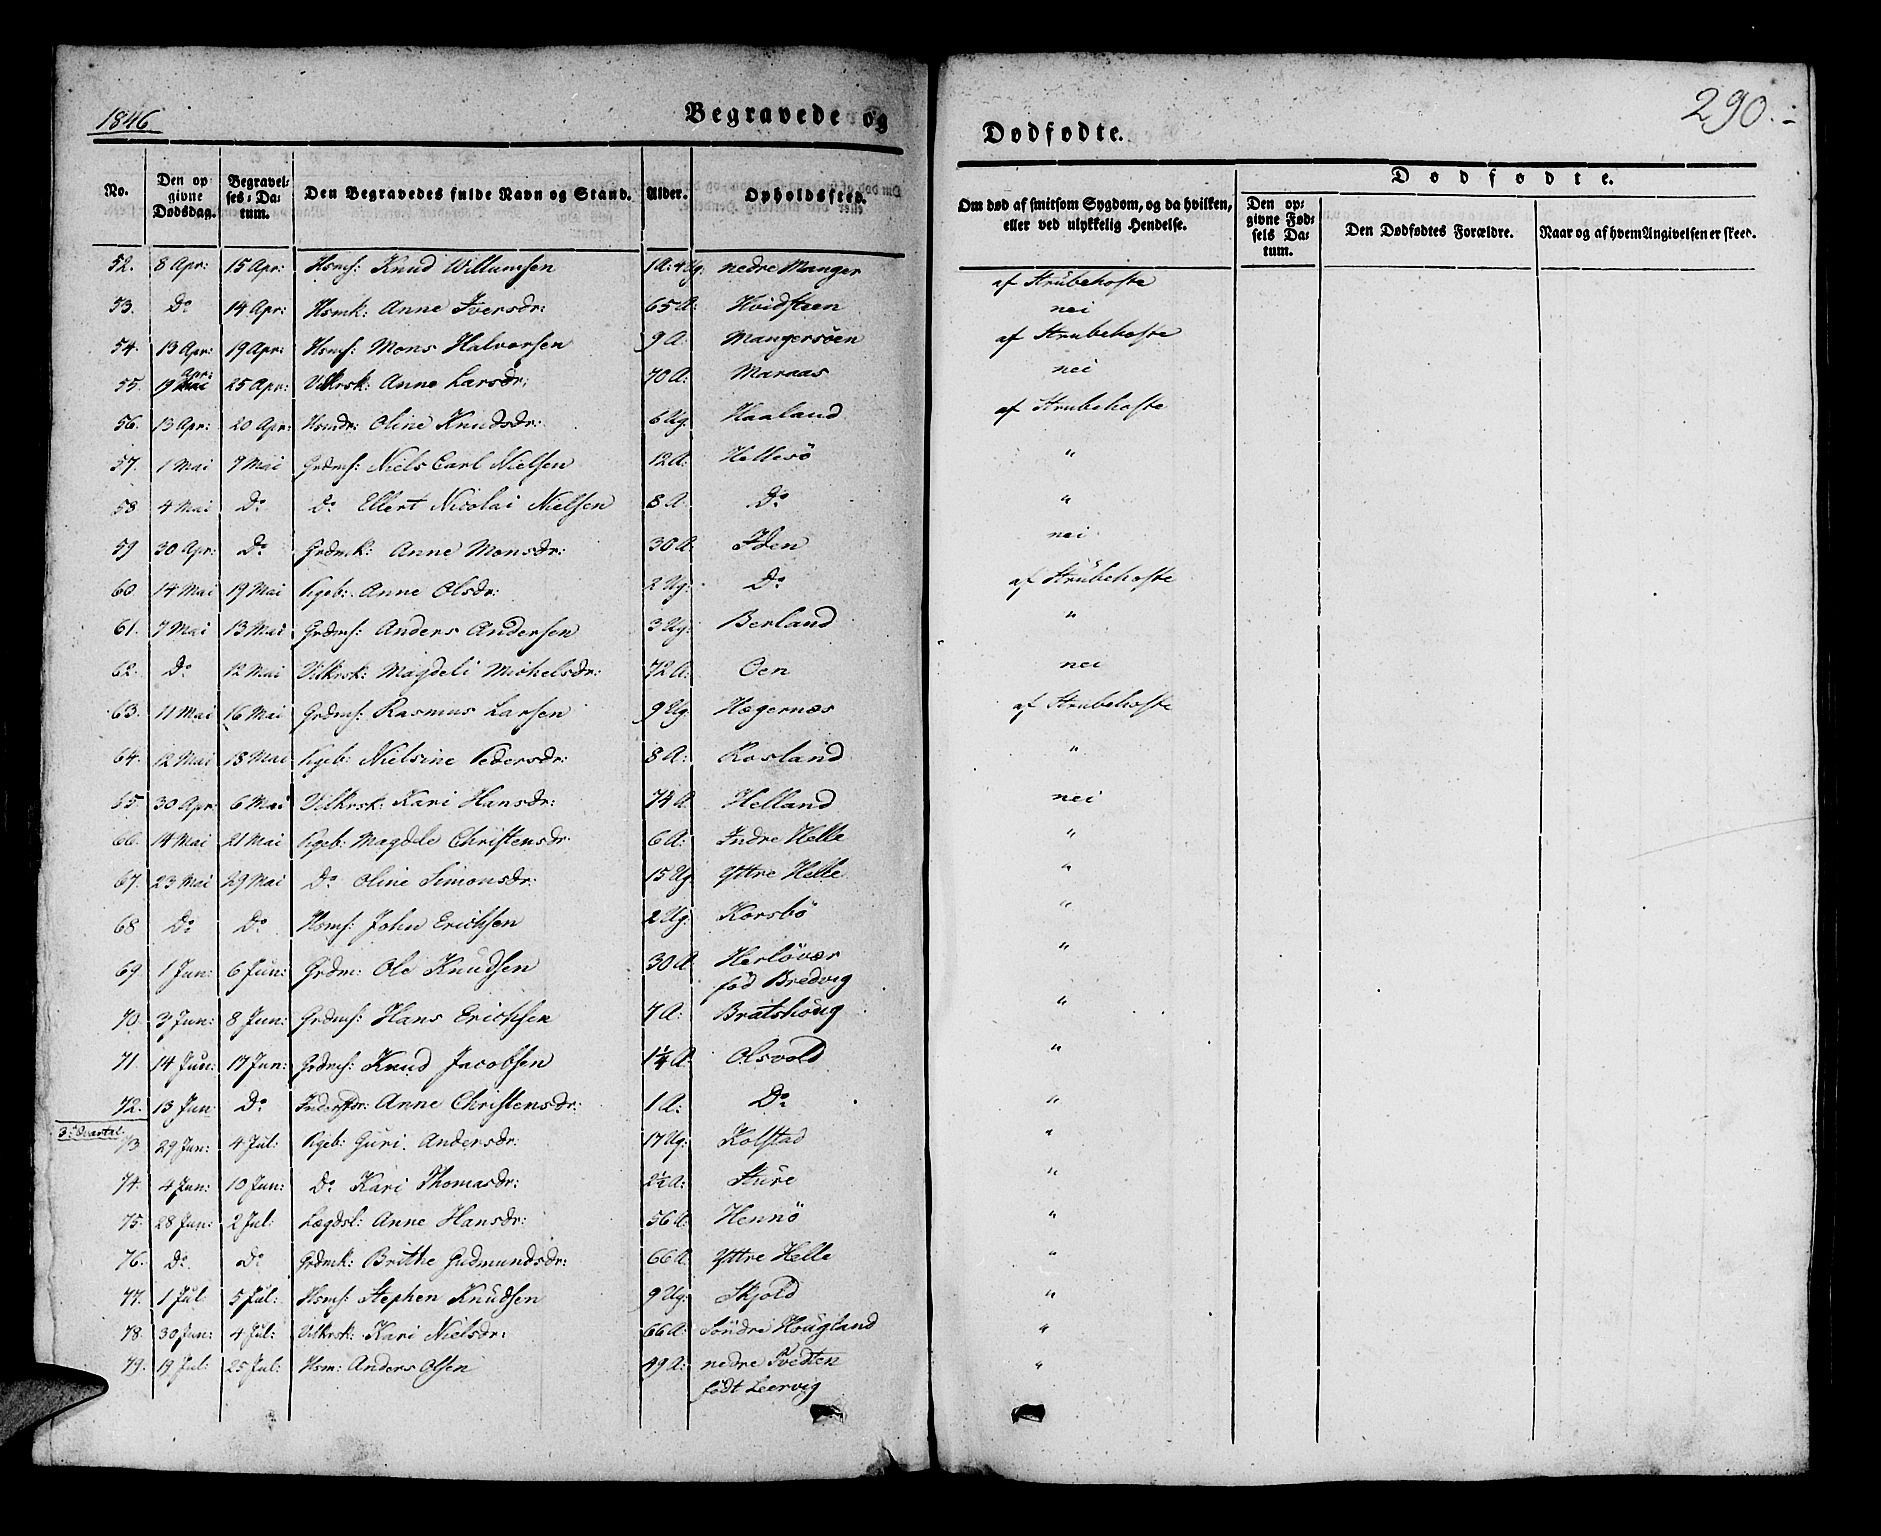 1846
Begravede og
Dodfodte.
290.
No.
Den opgivne Dødsdag.
Begravelses-Datum.
Den Begravedes fulde Navn og Stand.
Alder.
Opholdssted.
Om død af smitsom Sygdom, og da hvilken, eller ved ulykkelig Hendelse.
Dodfodte.
Den opgivne Fødsels Datum.
Den Dødfødtes Forældre.
Naar og af hvem Angivelsen er skeed.
52. 8 Apr: 15 Apr: Hsmf: Knud Willumsen 1 A: 4 Ug: nedre Manger af Strubehoste
53. Do 14 Apr: Hsmk: Anne Iversdr: 65 A: Hvidsteen nei
54. 13 Apr: 19 Apr: Hsmf: Mons Halvorsen 9 A: Mangersöen af Strubehoste
55. 19 Apr: 25 Apr: Vilkrsk: Anne Larsdr: 70 A: Maraas nei
56. 13 Apr: 20 Apr: Hsmdr: Oline Knudsdr: 6 Ug. Haaland af Strubehoste
57. 1 Mai 7 Mai Grdmf: Niels Carl Nielsen 12 A: Hellesö "
58 4 Mai Do Do Ellert Nicolai Nielsen 8 A: Do "
59 30 Apr: Do Grdmk: Anne Monsdr: 30 A: Iden nei
60 14 Mai 19 Mai Pgeb: Anne Olsdr: 2 Ug: Do af Strubehoste
61. 7 Mai 13 Mai Grdmf: Anders Andersen 3 Ug: Berland "
62. Do 12 Mai Vilkrsk: Magdeli Michelsdr: 72 A: Oen nei
63. 11 Mai 16 Mai Grdmf: Rasmus Larsen 9 Ug Hægernæs af Strubehoste
64. 12 Mai 18 Mai Pgeb: Nielsine Pedersdr: 8 A: Rosland "
65 30 Apr: 6 Mai Vilkrsk: Kari Hansdr: 74 A Helland nei
66. 14 Mai 21 Mai Pgeb: Magdle Christensdr: 6 A: Indre Helle "
67. 23 Mai 29 Mai Do Oline Simonsdr: 15 Ug Yttre Helle "
68 Do Do Hsmf: John Erichsen 2 Ug: Korsbö "
69 1 Jun: 6 Jun: Grdm: Ole Knudsen 30 A Herlövær "
föd Bredvig
70. 3 Jun: 8 Jun: Grdmf: Hans Erichsen 7 A: Bratshoug "
71. 14 Jun: 17 Jun: Grdmf: Knud Jacobsen 1¼ A. Olsvold "
72. 13 Jun Do Inderstdr: Anne Christensdr: 1 A: Do "
3. Qvartal.
73 29 Jun: 4 Jul: Pgeb: Guri Andersdr: 17 Ug: Kolstad "
74. 4 Jun: 10 Jun: Do Kari Thomasdr: 2½ A: Sture "
75. 28 Jun: 2 Jul: Lægdsl: Anne Hansdr: 56 A Hennö "
76. Do Do Grdmk: Brithe Gudmundsdr: 66 A: Yttre Helle "
77. 1 Jul 5 Jul: Hsmf: Stephen Knudsen 9 Ug: Skjold "
78. 30 Jun: 4 Jul: Vilkrsk: Kari Nielsdr: 66 A: Söndre Hougland "
79. 19 Jul: 25 Jul: Hsm: Anders Olsen 49 A: nedre Tvedten "
födt Leervig